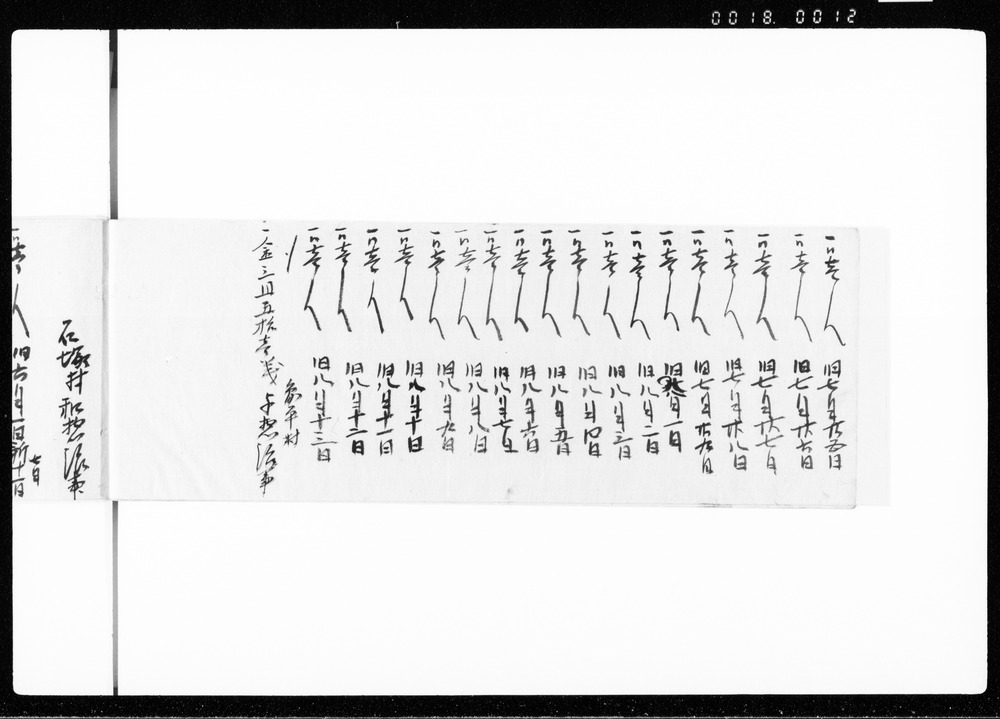 0018. 0012
一〃壱人 旧七月廿五日
一〃壱人 旧七月廿六日
一〃壱人 旧七月廿七日
一〃壱人 旧七月廿八日
一〃壱人 旧七月廿九日
一〃壱人 旧八月一日
一〃壱人 旧八月二日
一〃壱人 旧八月三日
一〃壱人 旧八月四日
一〃壱人 旧八月五日
一〃壱人 旧八月六日
一〃壱人 旧八月七日
一〃壱人 旧八月八日
一〃壱人 旧八月九日
一〃壱人 旧八月十日
一〃壱人 旧八月十一日
一〃壱人 旧八月十二日
一〃壱人 旧八月十三日
村
一金三円五拾壱銭
石塚村
一〃壱人 旧六月一日新十一日
七月